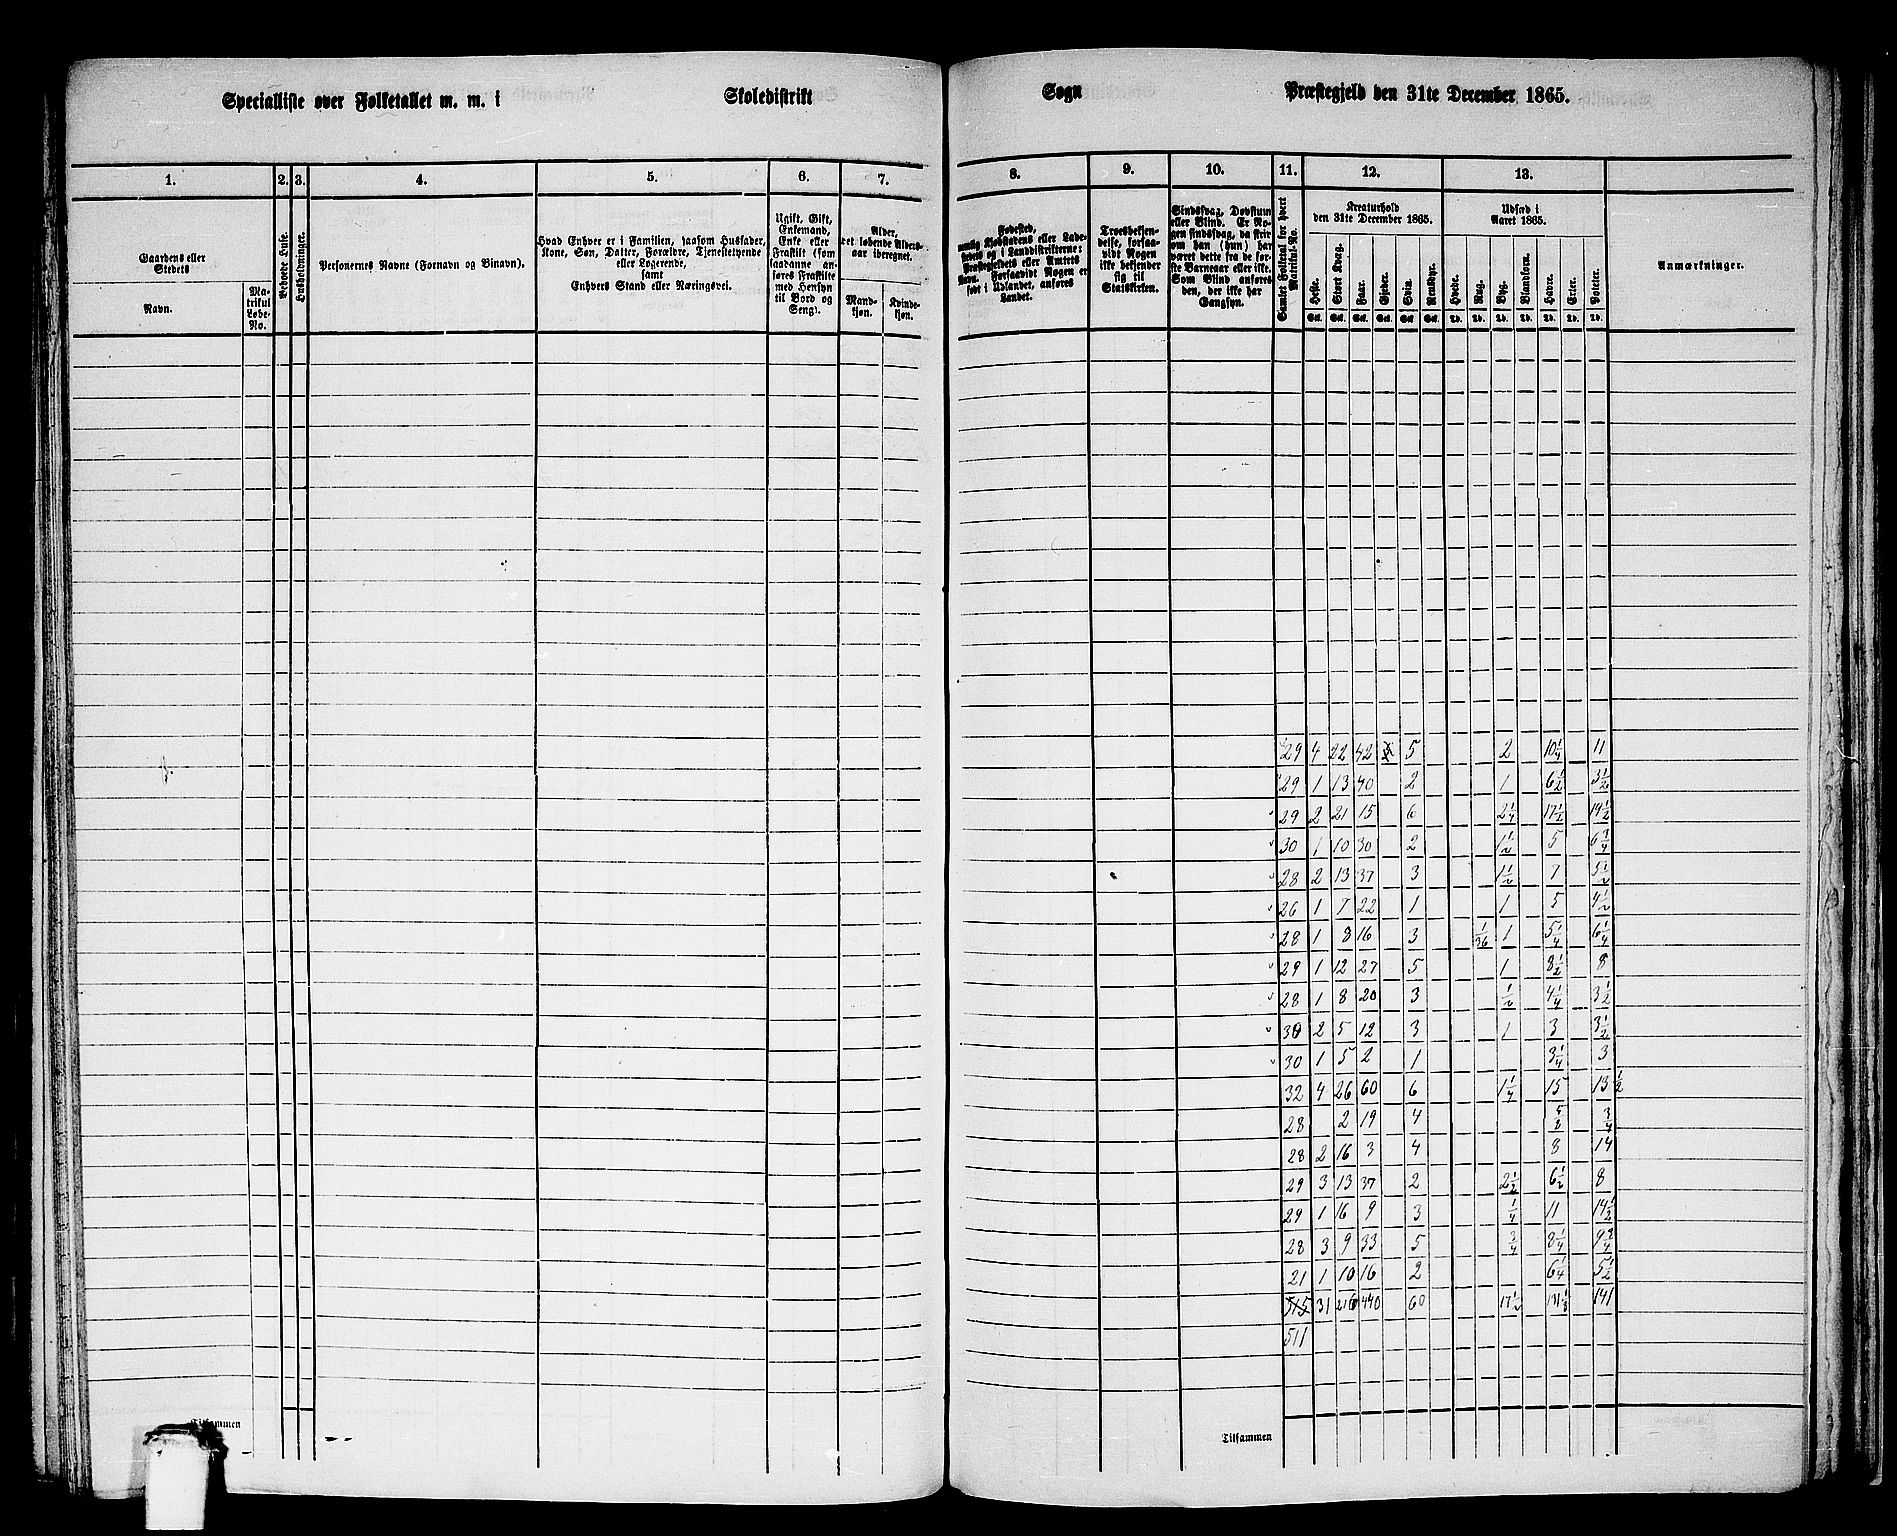 Specialliste over Folketallet m. m. i Skoledistrikt Sogn Præstegjeld den 31te December 1865.
1. 2. 3. 4. 5. 6. 7. 8. 9. 10. 11. 12. 13.
Gaardens eller Stedets
Navn.
Matrikul Løbe-No.
Beboede Huse.
Husholdninger.
Personernes Navne (Fornavn og Binavn).
Hvad Enhver er i Familien, saasom Husfader,
Kone, Søn, Datter, Forældre, Tjenestetyende
eller Logerende,
samt
Enhvers Stand eller Næringsvei.
Ugift, Gift,
Enkemand,
Enke eller
Fraskilt (som
saadanne anføres Fraskilte
med Hensyn
til Bord og
Seng).
Alder,
det løbende Alders-
aar iberegnet.
Mand-
kjøn.
Kvinde-
kjøn.
Fødested,
nemlig Kjøbstadens eller Lade-
stedets og i Landdistrikterne:
Præstegjeldets eller Amtets
Navn. Forsaavidt Nogen er
født i Udlandet, anføres
Landet.
Troesbekjen-
delse, forsaa-
vidt Nogen
ikke bekjender
sig til
Statskirken.
Sindssvag, Døvstum
eller Blind. Er No-
gen sindssvag, da skrives
om han (hun) har
været dette fra de før-
ste Barneaar eller ikke.
Som Blind anføres
den, der ikke har
Gangsyn.
Samlet Folketal for hvert Matrikul-No.
Kreaturhold
den 31te December 1865.
Heste. Stort Kvæg. Faar. Gjeder. Svin. Rensdyr.
Udsæd i
Aaret 1865.
Hvede. Rug. Byg. Blandkorn. Havre. Erter. Poteter.
Stk. Stk. Stk. Stk. Stk. Stk. Td. Td. Td. Td. Td. Td. Td.
Anmærkninger.
29 4 22 42 5 2 10 1/4 11
29 1 13 40 2 1 6 1/2 3 1/2
29 2 21 15 6 2 1/4 17 1/2 19 1/2
30 1 10 30 2 1 1/2 5 6 3/4
28 2 13 37 3 1 1/2 7 5 1/2
26 1 7 22 1 1 5 4 1/2
28 1 8 16 3 1/36 1 5 1/4 6 1/4
29 1 12 27 5 1 8 1/2 8
28 1 8 20 3 1/2 4 1/4 3 1/2
30 2 5 12 3 1 3 3 1/2
30 1 5 2 1 3 1/4 3
32 4 26 60 6 1 1/4 15 13 1/2
28 2 19 4 5/8 3/4
28 2 16 3 4 8 14
29 3 13 37 2 2 1/2 6 1/2 8
29 1 16 9 3 1/4 11 14 1/2
28 3 9 33 5 3/4 8 1/4 9 3/4
21 1 10 16 2 6 1/4 5 1/2
515 31 216 440 60 17 1/2 131 1/8 141
511
Tilsammen
Tilsammen